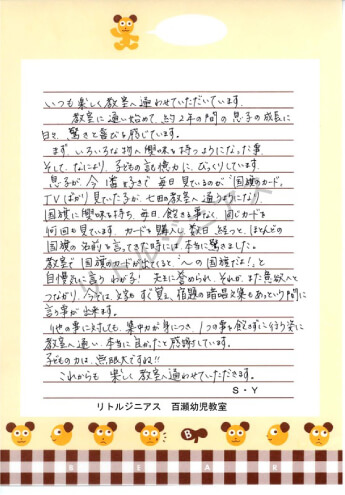 いつも楽しく教室へ通わせていただいています。
教室に通い始めて、約2年の間の息子の成長に
日々、驚きと喜びを感じています。
まず、いろいろな物へ興味を持つようになった事、
そして、なにより、子どもの記憶力に、びっくりしています。
息子が、今1番好きで毎日見ているのが"国旗のカード。
TVばかり見ていた子が、七田の教室へ通うようになり、
国旗に興味を持ち、毎日、飽きる事なく、同じカードを
何回も見ています。カードを購入し、数日経つと、ほとんどの
国旗の名前を言ってきた時には、本当に驚きました。
教室で国旗のカードが出てくると"〜の国旗だよ!"と
自慢気に言うわが子!先生に誉められ、それが、また意欲へと
つながり、今では、文章もすぐ覚え、宿題の暗唱文集もあっという間に
言う事が出来ます。
他の事に対しても、集中力が身につき、1つの事を飽きずに行う姿に
教室へ通い、本当に良かったと感謝しています。
子どもの力は、無限大ですね!!
これからも楽しく教室へ通わせていただきます。
S・Y
リトルジニアス 百瀬幼児教室
B
BEAR